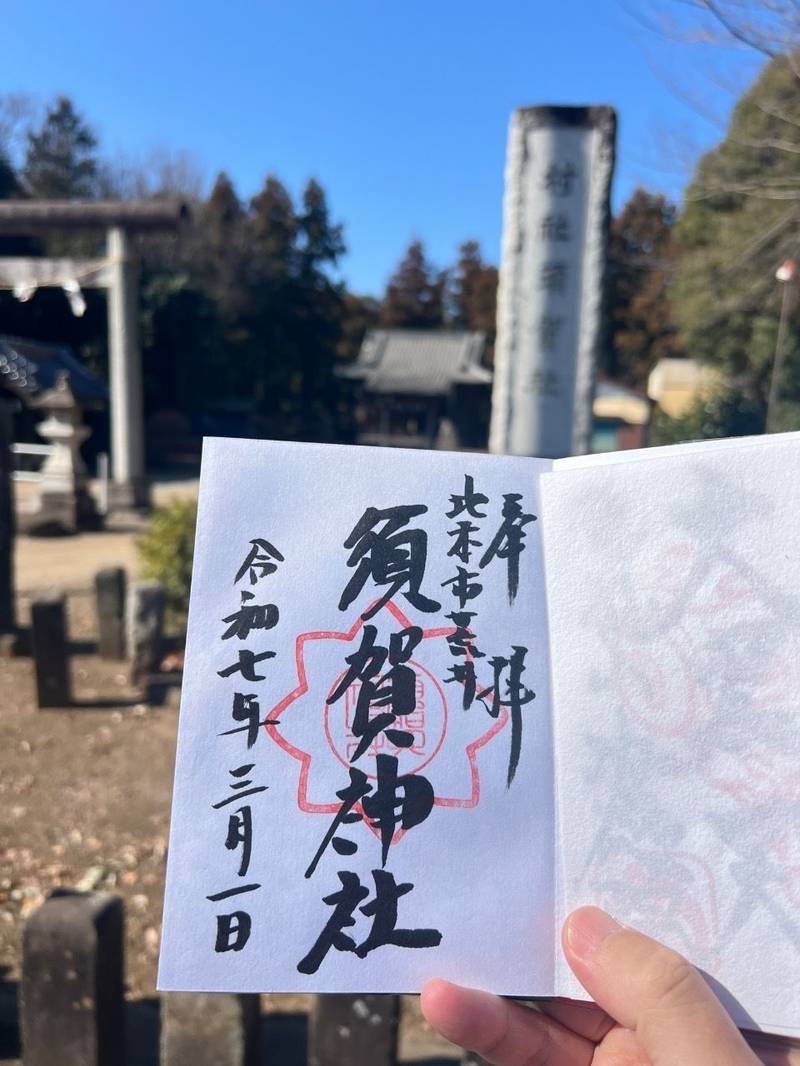 奉拝
北本市荒井
須賀神社
令和七年三月一日
村社須賀神社